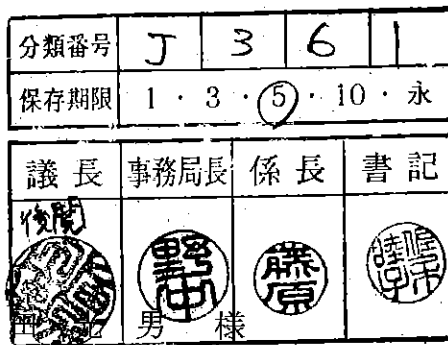 分類番号 J 3 6 1
保存期限 1・3・⑤・10・永
議長 事務局長 係長 書記
後閲
野中 藤原
男 様